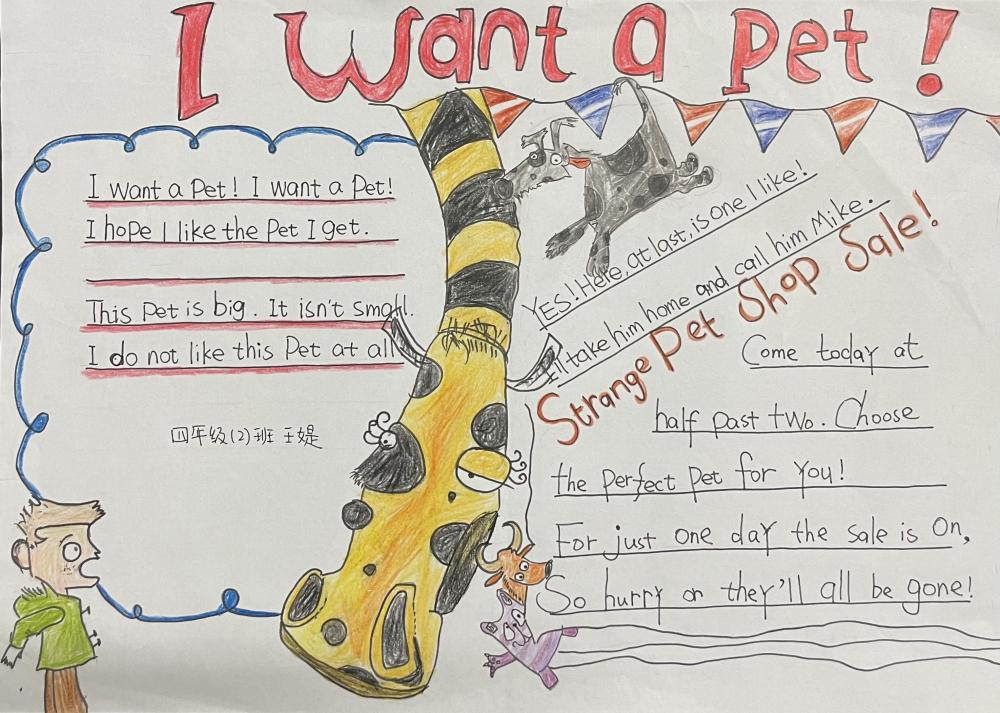 I want a Pet!
I want a Pet! I want a Pet!
I hope I like the Pet I get.
This Pet is big. It isn't small.
I do not like this Pet at all
四年级(2)班 王媞
YES! Here, at last, is one I like!
I'll take him home and call him Mike.
Strange Pet Shop Sale!
Come today at
half past two. Choose
the perfect pet for you!
For just one day the sale is on,
So hurry or they'll all be gone!